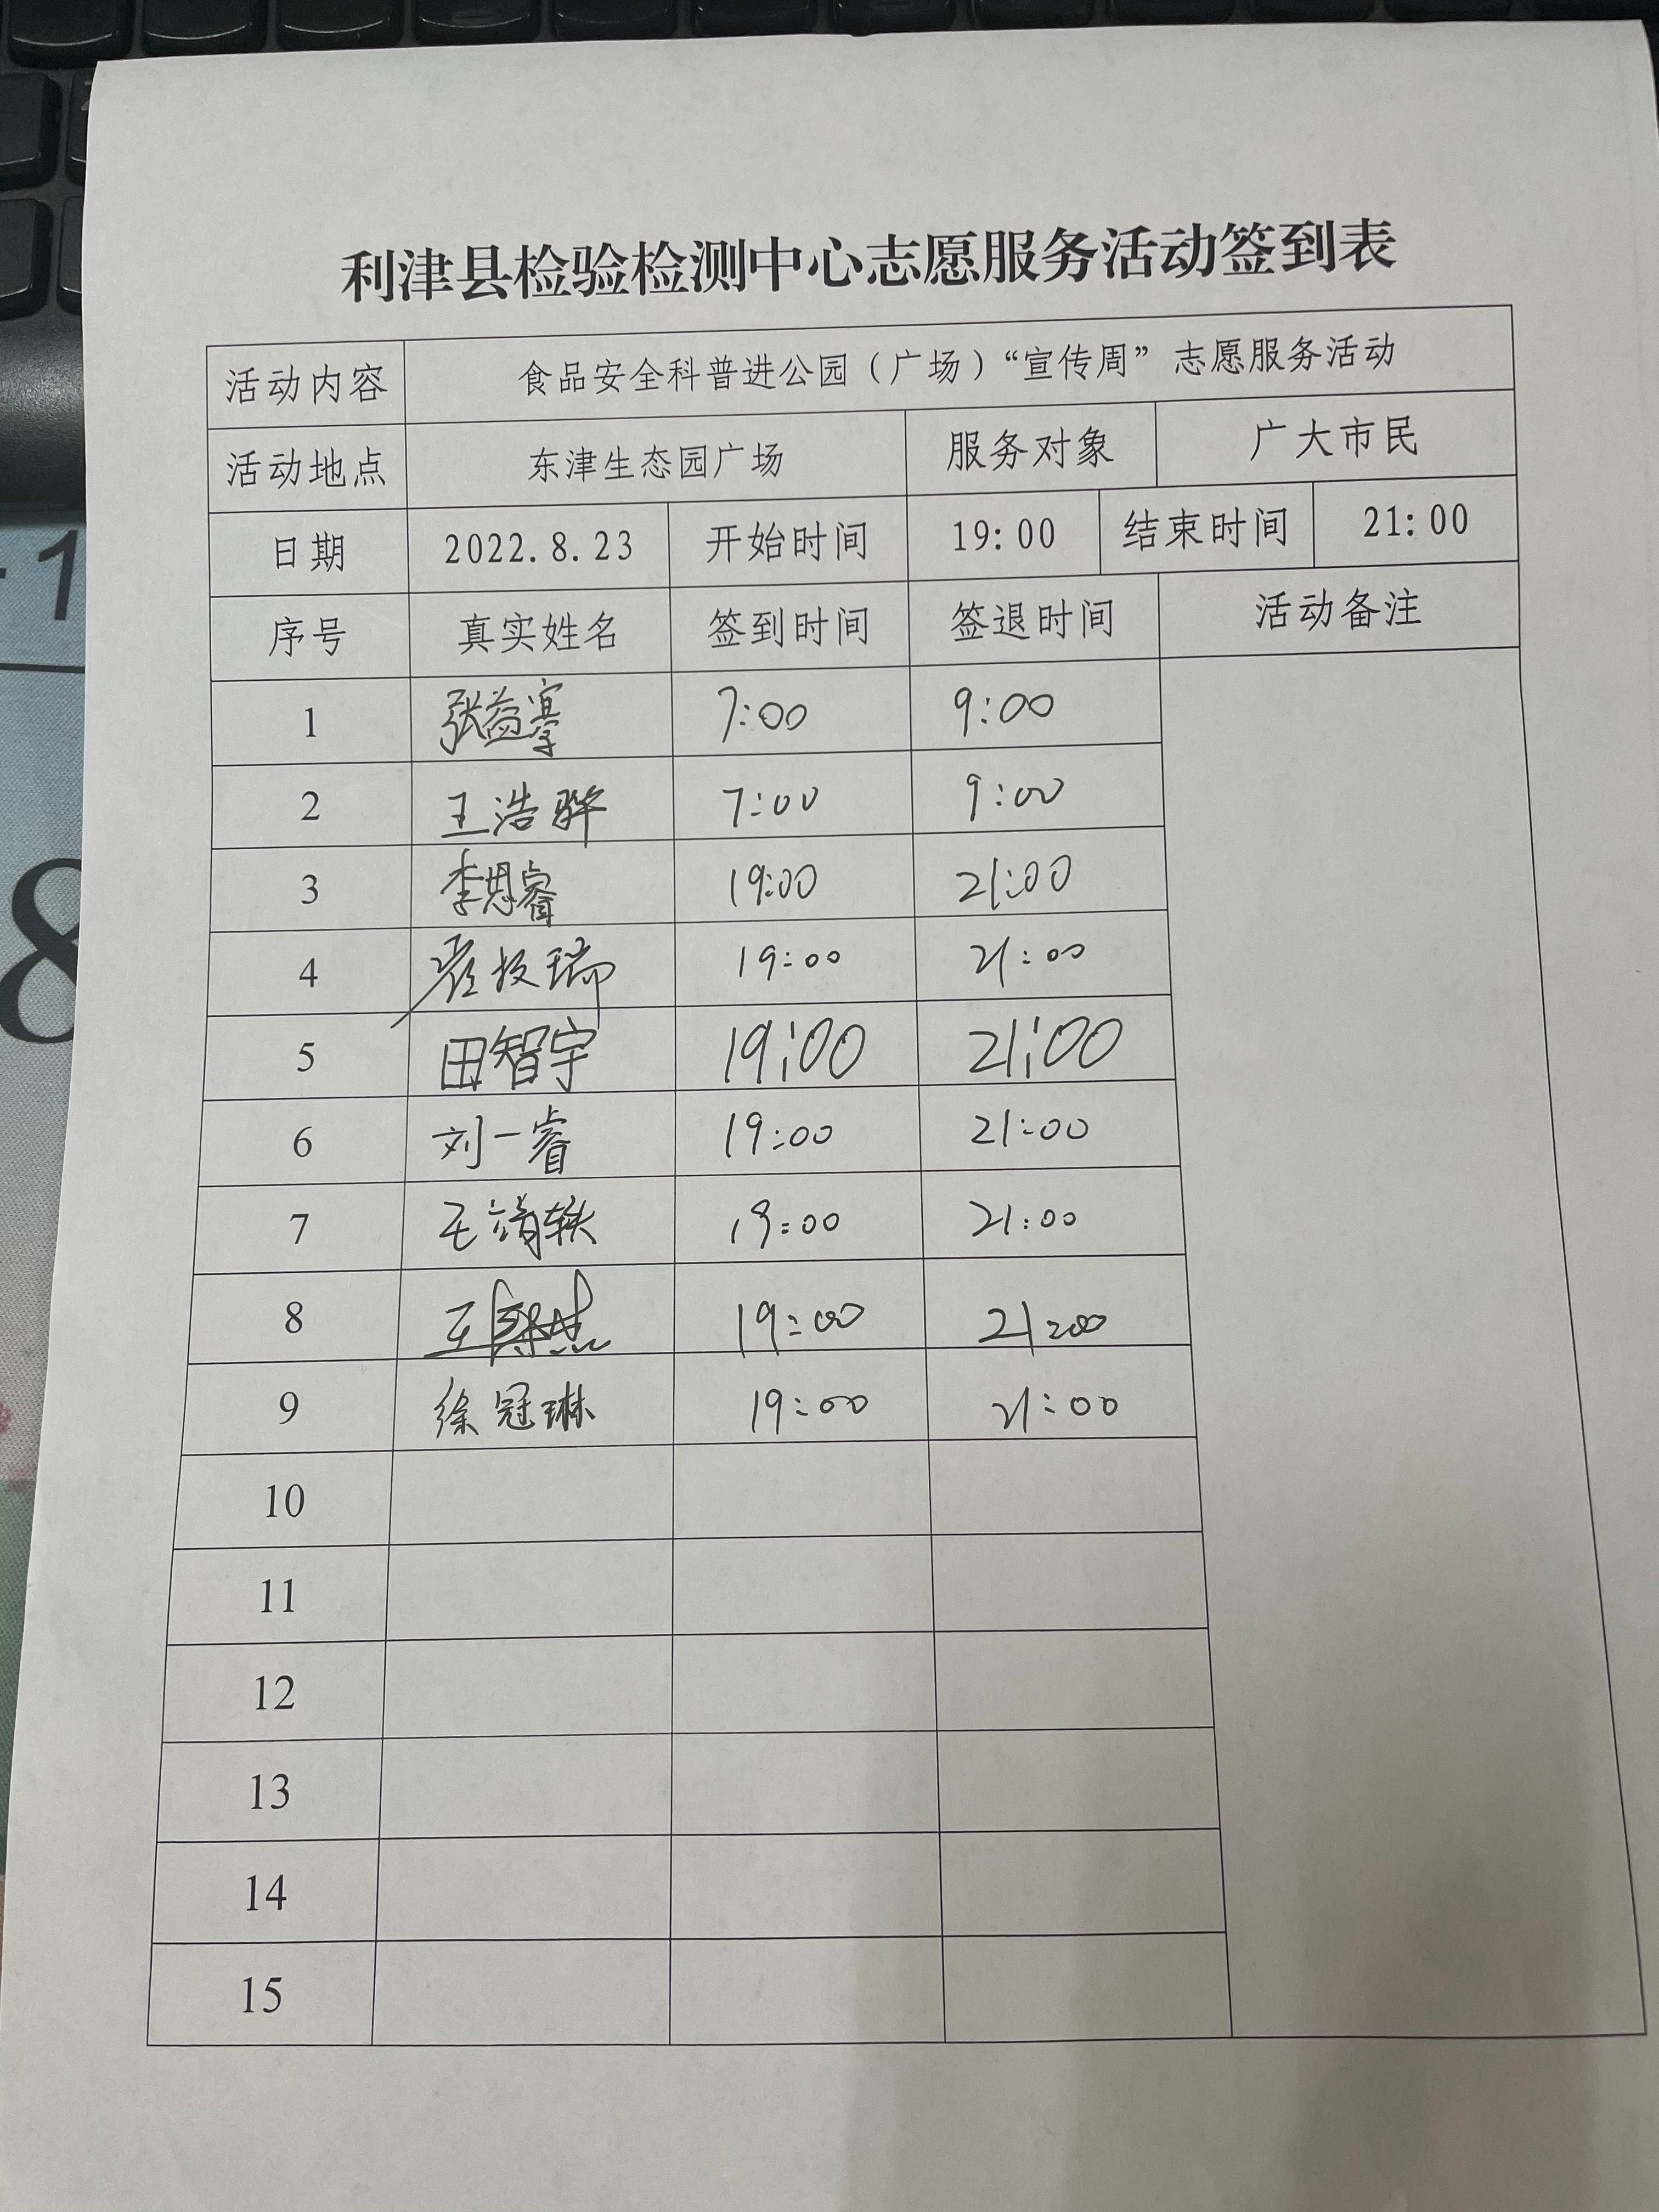 利津县检验检测中心志愿服务活动签到表
活动内容 食品安全科普进公园（广场）“宣传周”志愿服务活动
活动地点 东津生态园广场 服务对象 广大市民
日期 2022.8.23 开始时间 19:00 结束时间 21:00
序号 真实姓名 签到时间 签退时间 活动备注
1 张益搴 7:00 9:00
2 王浩骅 7:00 9:00
3 李恩睿 19:00 21:00
4 19:00 21:00
5 田智宇 19:00 21:00
6 刘一睿 19:00 21:00
7 王靖轶 19:00 21:00
8 王 19:00 21:00
9 徐冠琳 19:00 21:00
10
11
12
13
14
15
1
8